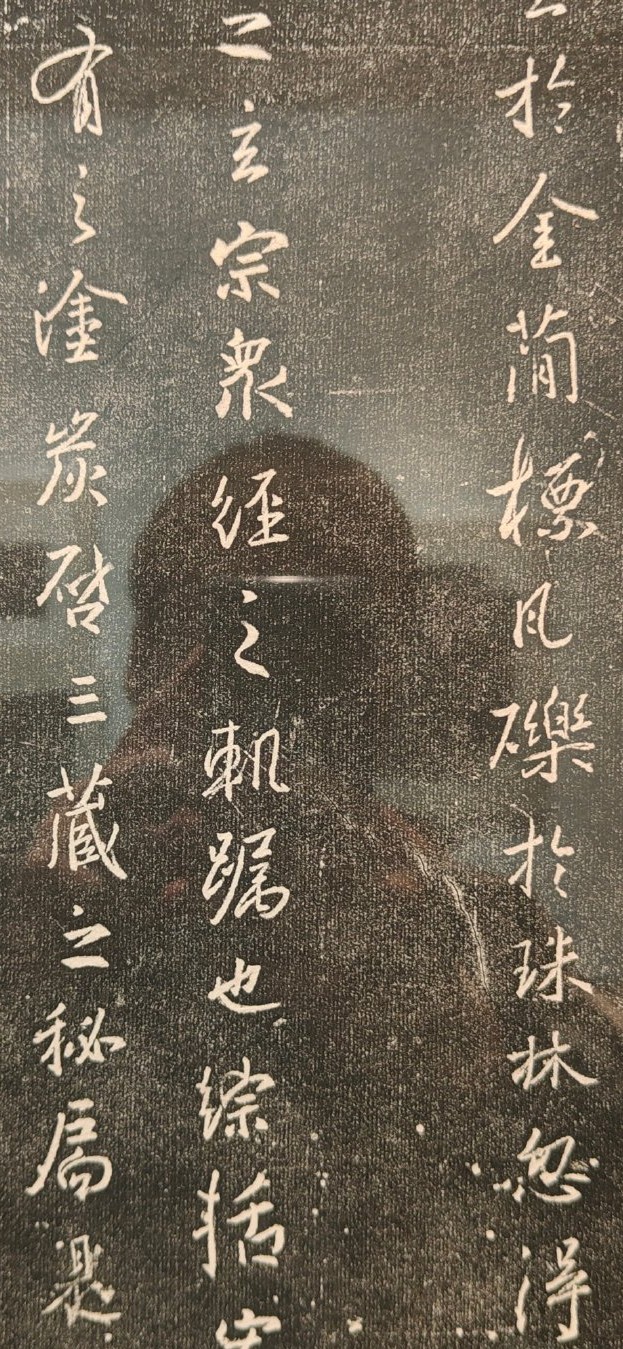 於金簡標瓦礫於珠林忽得
之玄宗衆經之軌躅也綜括
有之塗炭啓三藏之秘扃是